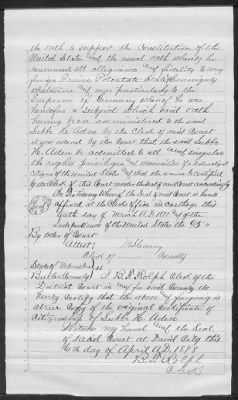 the oath to support the Constitution of the
United States and the usual oath whereby he
renounced all allegiance and fidelity to every
foreign Prince Potentate State Sovereignty
whatsoever and more particularly to the
Emperor of Germany whereof he was
heretofore a subject which said oath
having been administered to the said
Subbe H. Aden by the Clerk of said Court
it was ordered by the Court that the said Subbe
H. Aden be admitted to all and singular
the rights privileges and immunities of a naturalized
citizen of the United States and that the same be certified
by the Clerk of this Court under the seal of said Court accordingly
In Testimony Whereof the Seal of said Court is hereto
affixed at the Clerks Office in Carthage this
day of March A.D. and of the
Independence of the United States the
By order of Court
Attest;
Clerk of County
State of Nebraska
Butler County I R.S. Rolph Clerk of the
District Court in and for said County do
hereby certify that the above and foregoing is
a true Copy of the original Certificate of
Citizenship of Subbe H. Aden.
Witness my hand and the Seal
of said Court at David City this
day of April A.D. 1898
Clerk